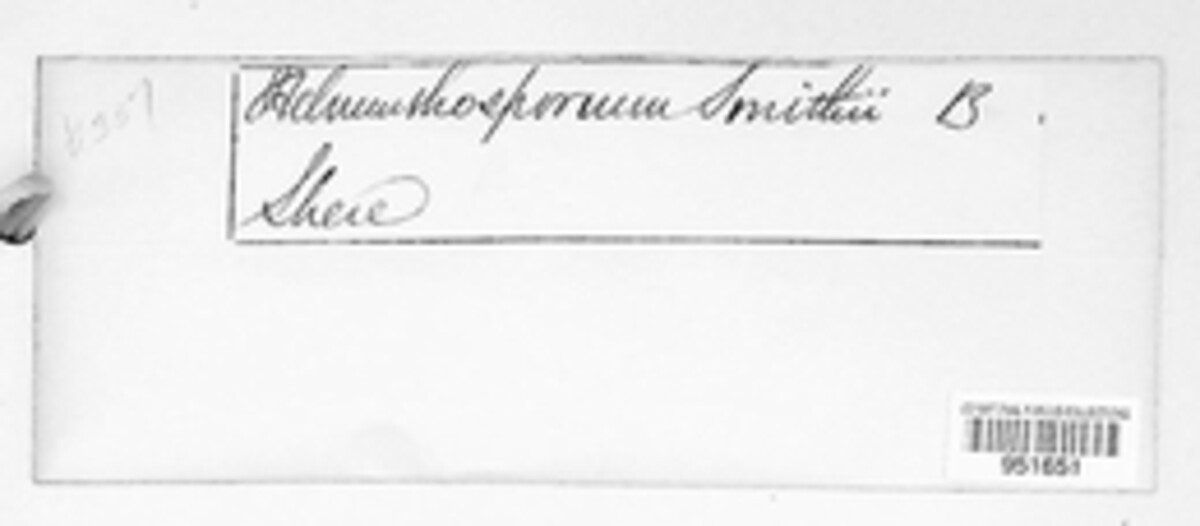 Helminthosporium Smithii B.
Shere
951651